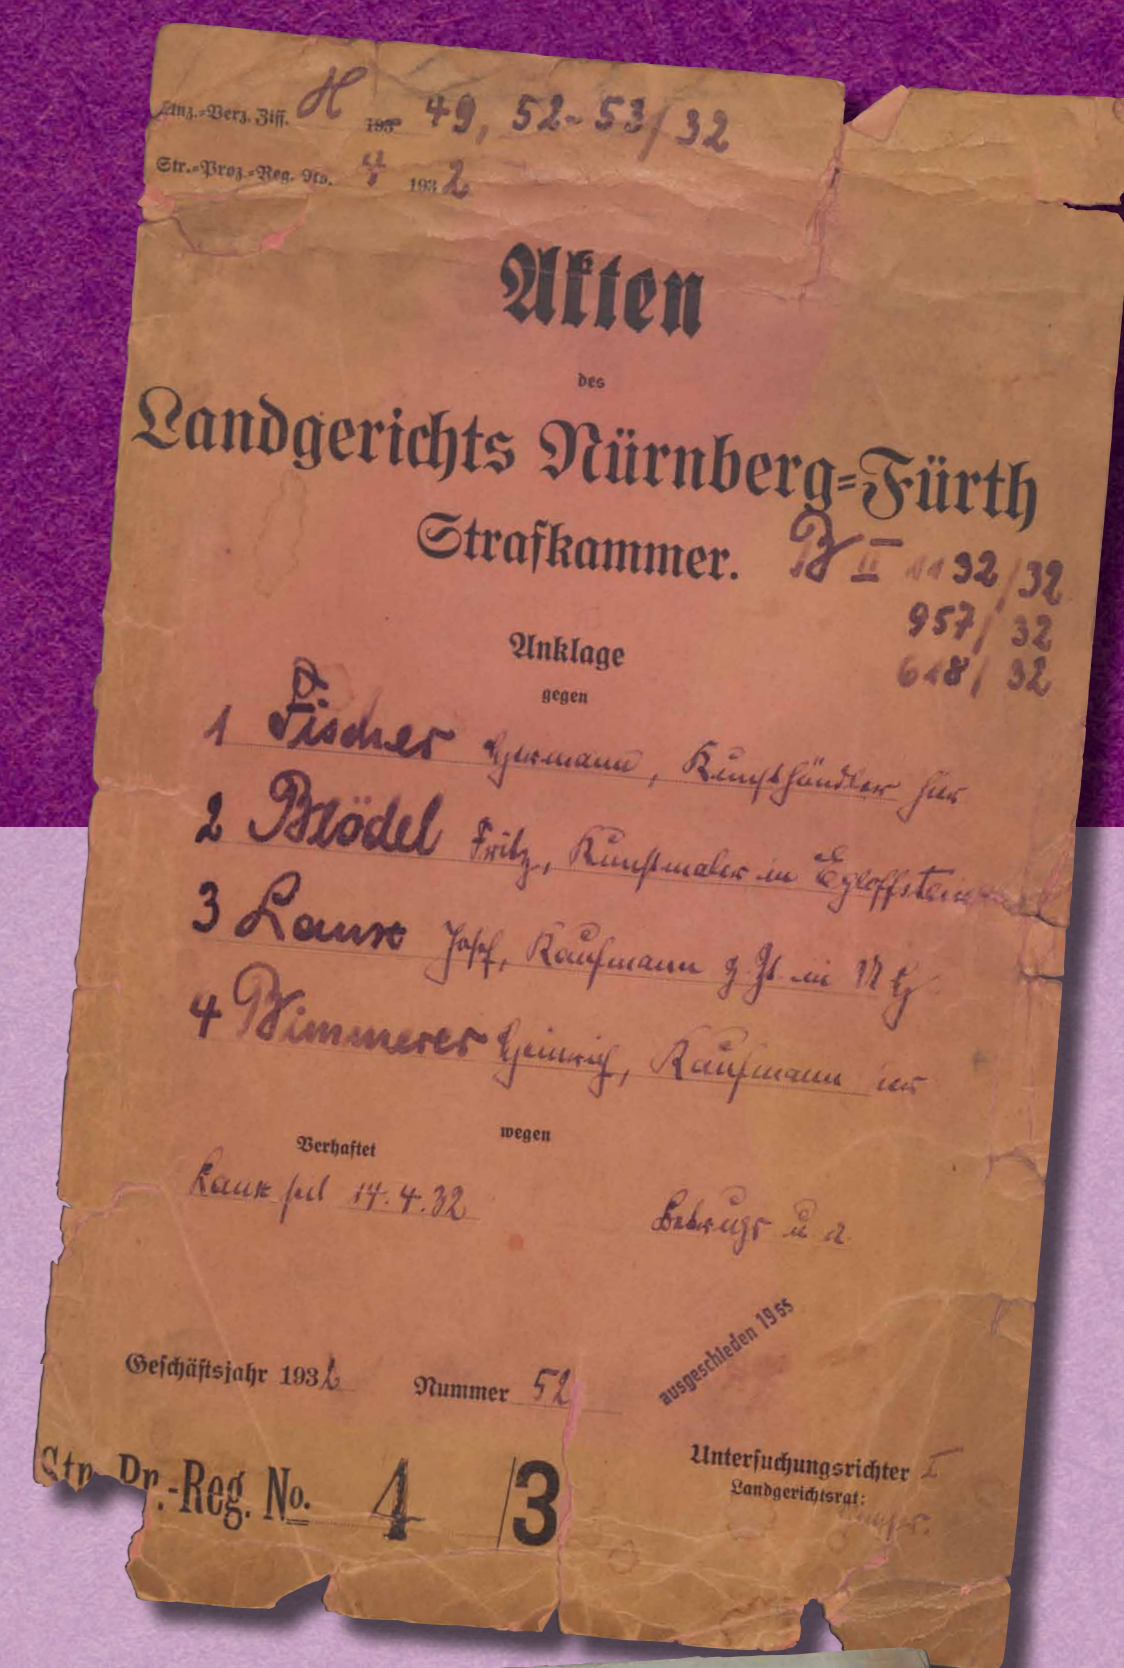 Anz.-Verz. Ziff. H 193 49, 52-53/32
Str.-Proz.-Reg. No. 1932
Akten
des
Landgerichts Nürnberg=Fürth
Strafkammer.
B II 1132/32
957/32
618/32
Anklage
gegen
1 Fischer Hermann, Kunsthändler hier
2 Blödel Fritz, Kunstmaler in Egloffstein
3 Laux Josef, Kaufmann z. Zt. in
4 Bimmerer Heinrich, Kaufmann
wegen
Verhaftet
Laux seit 14.4.32
Betrugs u a
ausgeschieden 1955
Geschäftsjahr 1932 Nummer 52
Untersuchungsrichter I
Landgerichtsrat:
Str. Pr.-Reg. No. 4 /3